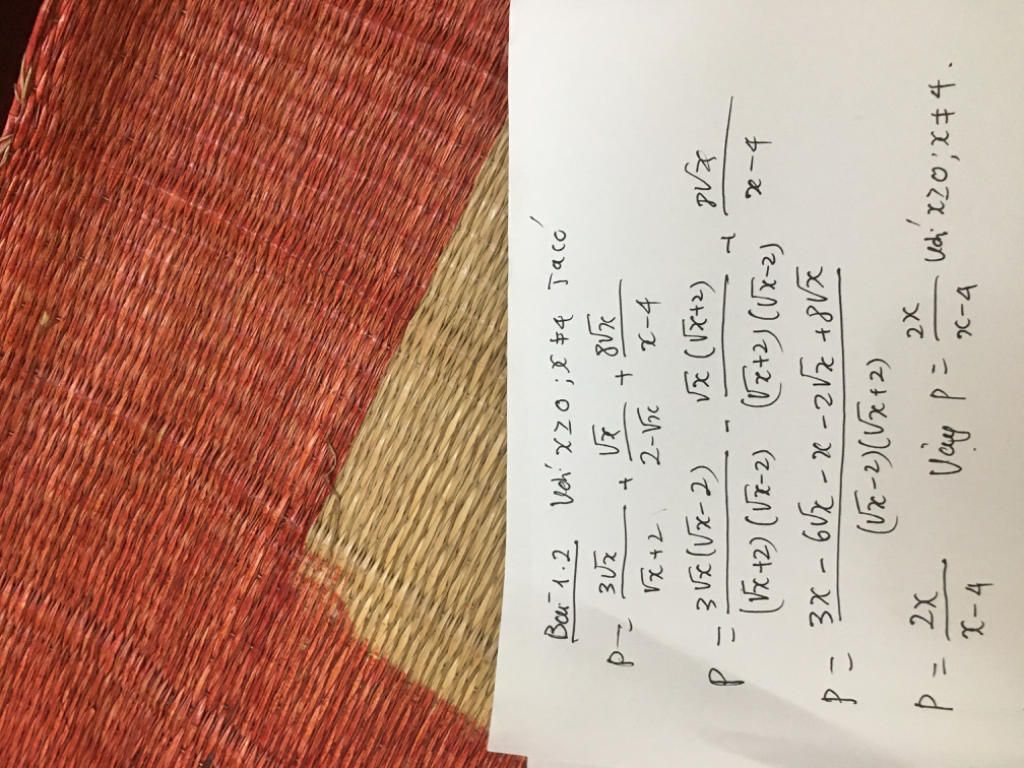 Bài 1.2 Với x ≥ 0 ; x ≠ 4 Ta có
P = 3√x/(√x+2) + √x/(2-√x) + 8√x/(x-4)
P = 3√x(√x-2)/((√x+2)(√x-2)) - √x(√x+2)/((√x+2)(√x-2)) + 8√x/(x-4)
P = (3x - 6√x - x - 2√x + 8√x)/((√x-2)(√x+2))
P = 2x/(x-4) Vậy P = 2x/(x-4) Với x ≥ 0 ; x ≠ 4.